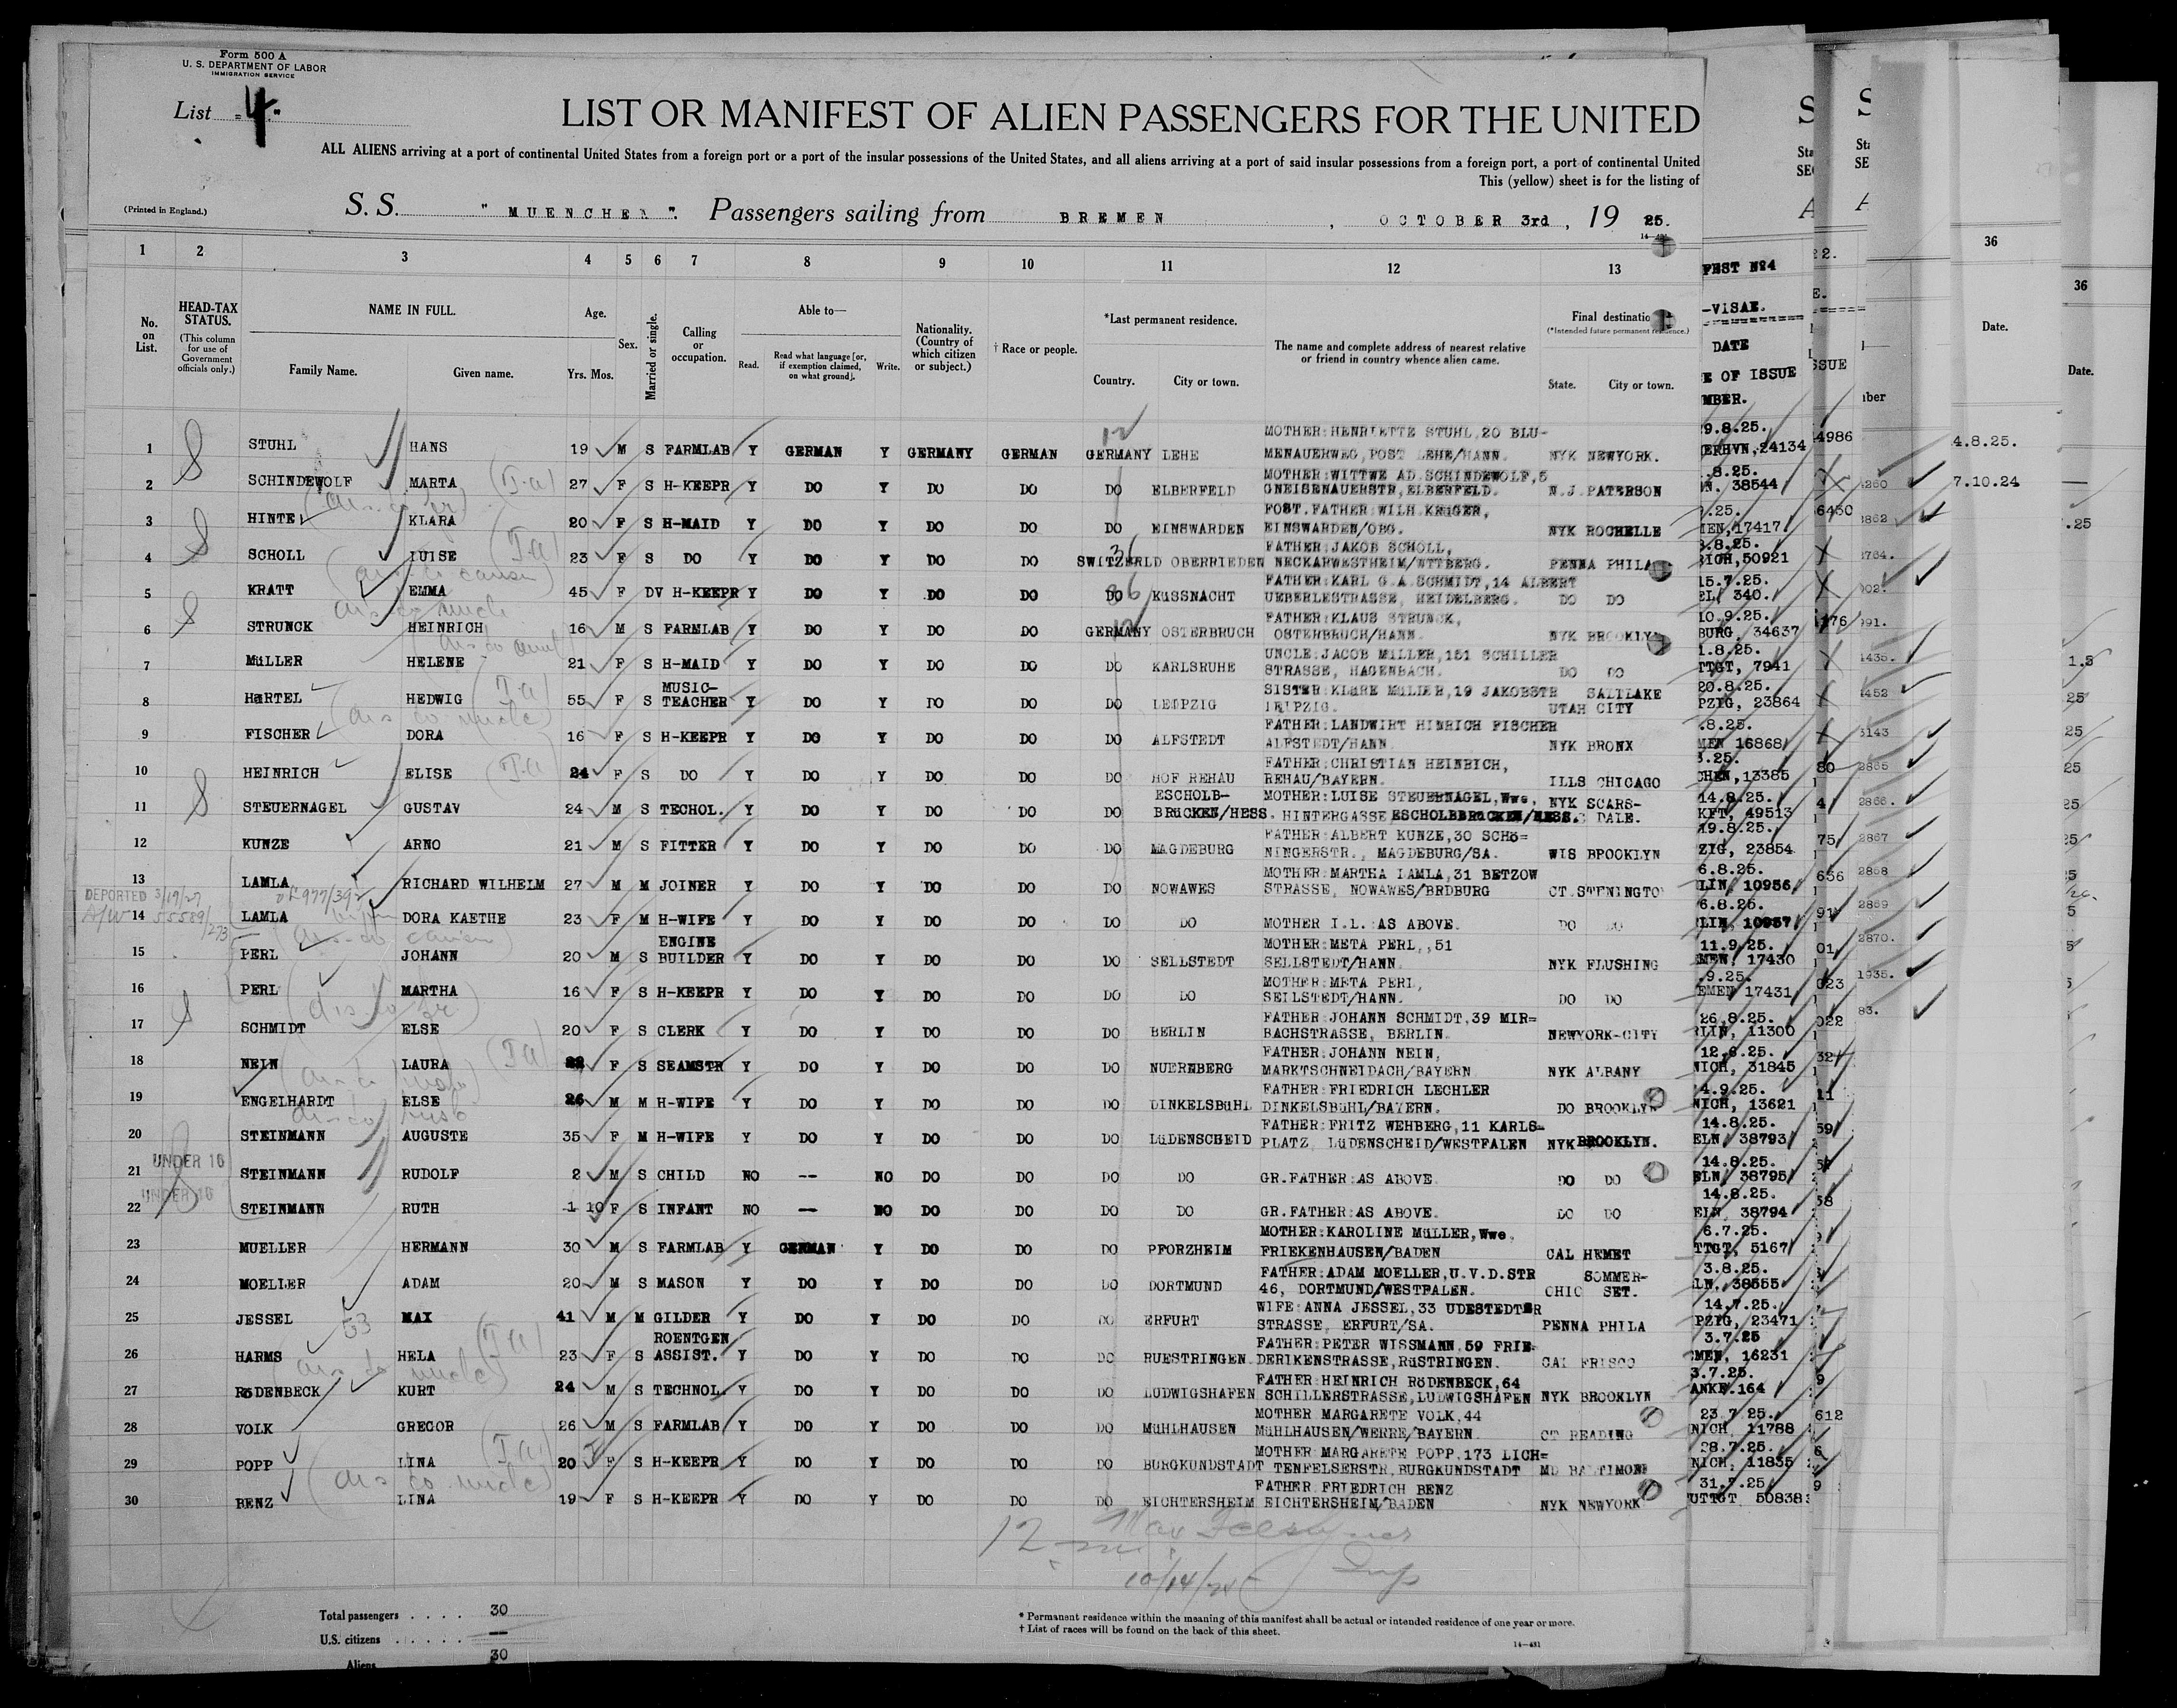 Form 500 A
U. S. DEPARTMENT OF LABOR
IMMIGRATION SERVICE
List 4
LIST OR MANIFEST OF ALIEN PASSENGERS FOR THE UNITED
ALL ALIENS arriving at a port of continental United States from a foreign port or a port of the insular possessions of the United States, and all aliens arriving at a port of said insular possessions from a foreign port, a port of continental United
This (yellow) sheet is for the listing of
(Printed in England.)
S. S. "MUENCHEN". Passengers sailing from BREMEN, OCTOBER 3rd, 19 25.
1 2 3 4 5 6 7 8 9 10 11 12 13
No. on List.
HEAD-TAX STATUS.
(This column for use of Government officials only.)
NAME IN FULL.
Family Name. Given name.
Age.
Yrs. Mos.
Sex.
Married or single.
Calling or occupation.
Able to—
Read. Read what language [or, if exemption claimed, on what ground]. Write.
Nationality. (Country of which citizen or subject.)
† Race or people.
*Last permanent residence.
Country. City or town.
The name and complete address of nearest relative or friend in country whence alien came.
Final destination
(*Intended future permanent residence.)
State. City or town.
FEST No4
-VISAE.
DATE
E OF ISSUE
MBER.
36
Date.
36
Date.
MOTHER:HENRIETTE STUHL,20 BLU- 9.8.25.
1 STUHL HANS 19 M S FARMLAB Y GERMAN Y GERMANY GERMAN GERMANY LEHE MENAUERWEG,POST LEHE/HANN. NYK NEWYORK. ERHVN,24134 4986 4.8.25.
MOTHER:WITTWE AD.SCHINDEWOLF,5 .8.25.
2 SCHINDEWOLF MARTA 27 F S H-KEEPR Y DO Y DO DO DO ELBERFELD GNEISENAUERSTR,ELBERFELD. N.J.PATERSON N. 38544 7.10.24
FOST.FATHER:WILH.KRüGER, .25.
3 HINTE KLARA 20 F S H-MAID Y DO Y DO DO DO EINSWARDEN EINSWARDEN/OBG. NYK ROCHELLE MEN,17417 6450 .25
FATHER:JAKOB SCHOLL, .8.25.
4 SCHOLL LUISE 23 F S DO Y DO Y DO DO SWITZERLD OBERRIEDEN NECKARWESTHEIM/WTTBERG. PENNA PHILA RICH,50921
FATHER:KARL G.A.SCHMIDT,14 ALBERT 15.7.25.
5 KRATT EMMA 45 F DV H-KEEPR Y DO Y DO DO DO KüSSNACHT UEBERLESTRASSE, HEIDELBERG. DO DO EL, 340.
FATHER:KLAUS STRUNCK, 10.9.25.
6 STRUNCK HEINRICH 16 M S FARMLAB Y DO Y DO DO GERMANY OSTERBRUCH OSTERBRUCH/HANN. NYK BROOKLYN BURG, 34637
UNCLE:JACOB MüLLER,151 SCHILLER 1.8.25.
7 MüLLER HELENE 21 F S H-MAID Y DO Y DO DO DO KARLSRUHE STRASSE, HAGENBACH. DO DO TTGT, 7941
MUSIC- SISTER:KLäRE MüLLER,19 JAKOBSTR SALTLAKE 20.8.25.
8 HäRTEL HEDWIG 55 F S TEACHER Y DO Y DO DO DO LEIPZIG LEIPZIG. UTAH CITY PZIG, 23864
FATHER:LANDWIRT HINRICH FISCHER .8.25.
9 FISCHER DORA 16 F S H-KEEPR Y DO Y DO DO DO ALFSTEDT ALFSTEDT/HANN. NYK BRONX MEN 16868
FATHER:CHRISTIAN HEINRICH, .25.
10 HEINRICH ELISE 24 F S DO Y DO Y DO DO DO HOF REHAU REHAU/BAYERN. ILLS CHICAGO CHEN,13385
ESCHOLB- MOTHER:LUISE STEUERNAGEL,Wwe, NYK SCARS- 14.8.25.
11 STEUERNAGEL GUSTAV 24 M S TECHOL. Y DO Y DO DO DO BRüCKEN/HESS. HINTERGASSE ESCHOLBBRüCKEN/HESS. DALE. KFT, 49513
FATHER:ALBERT KUNZE,30 SCHö= 19.8.25.
12 KUNZE ARNO 21 M S FITTER Y DO Y DO DO DO MAGDEBURG NINGERSTR., MAGDEBURG/SA. WIS BROOKLYN ZIG, 23854
MOTHER:MARTHA LAMLA,31 BETZOW 6.8.25.
13 LAMLA RICHARD WILHELM 27 M M JOINER Y DO Y DO DO DO NOWAWES STRASSE, NOWAWES/BRDBURG CT.STENINGTO LIN, 10956
DEPORTED 3/19/27
6.8.25.
14 LAMLA DORA KAETHE 23 F M H-WIFE Y DO Y DO DO DO DO MOTHER I.L.:AS ABOVE. DO DO LIN, 10957
ENGINE MOTHER:META PERL,,51 11.9.25.
15 PERL JOHANN 20 M S BUILDER Y DO Y DO DO DO SELLSTEDT SELLSTEDT/HANN. NYK FLUSHING MEN, 17430
MOTHER:META PERL, .9.25.
16 PERL MARTHA 16 F S H-KEEPR Y DO Y DO DO DO DO SELLSTEDT/HANN. DO DO EMEN 17431
FATHER:JOHANN SCHMIDT,39 MIR= 26.8.25.
17 SCHMIDT ELSE 20 F S CLERK Y DO Y DO DO DO BERLIN BACHSTRASSE, BERLIN. NEWYORK-CITY RLIN, 11300
FATHER:JOHANN NEIN, 12.6.25.
18 NEIN LAURA 22 F S SEAMSTR Y DO Y DO DO DO NUERNBERG MARKTSCHNEIDACH/BAYERN NYK ALBANY NICH, 31845
FATHER:FRIEDRICH LECHLER 4.9.25.
19 ENGELHARDT ELSE 26 M M H-WIFE Y DO Y DO DO DO DINKELSBüHL DINKELSBüHL/BAYERN. DO BROOKLYN NICH, 13621
FATHER:FRITZ WEHBERG,11 KARLS= 14.8.25.
20 STEINMANN AUGUSTE 35 F M H-WIFE Y DO Y DO DO DO LüDENSCHEID PLATZ, LüDENSCHEID/WESTFALEN NYK BROOKLYN. ELN, 38793
UNDER 16
14.8.25.
21 STEINMANN RUDOLF 2 M S CHILD NO -- NO DO DO DO DO GR.FATHER:AS ABOVE. DO DO ELN, 38795
UNDER 16
14.8.25.
22 STEINMANN RUTH 1 10 F S INFANT NO -- NO DO DO DO DO GR.FATHER:AS ABOVE. DO DO ELN, 38794
MOTHER:KAROLINE MüLLER,Wwe. 6.7.25.
23 MUELLER HERMANN 30 M S FARMLAB Y GERMAN Y DO DO DO PFORZHEIM FRIEKENHAUSEN/BADEN CAL HEMET TTGT, 5167
FATHER:ADAM MOELLER,U.V.D.STR SOMMER- 3.8.25.
24 MOELLER ADAM 20 M S MASON Y DO Y DO DO DO DORTMUND 46, DORTMUND/WESTPALEN. OHIO SET. LN, 38555
WIFE:ANNA JESSEL,33 UDESTEDTER 14.7.25.
25 JESSEL MAX 41 M M GILDER Y DO Y DO DO DO ERFURT STRASSE, ERFURT/SA. PENNA PHILA PZIG, 23471
ROENTGEN FATHER:PETER WISSMANN,59 FRIE- 3.7.25
26 HARMS HELA 23 F S ASSIST. Y DO Y DO DO DO RUESTRINGEN DERIKENSTRASSE,RüSTRINGEN. CAL FRISCO MEN, 16231
FATHER:HEINRICH RöDENBECK,64 3.7.25.
27 RöDENBECK KURT 24 M S TECHNOL. Y DO Y DO DO DO LUDWIGSHAFEN SCHILLERSTRASSE,LUDWIGSHAFEN NYK BROOKLYN ANKF.164
MOTHER MARGARETE VOLK,44 23.7.25.
28 VOLK GREGOR 26 M S FARMLAB Y DO Y DO DO DO MüHLHAUSEN MüHLHAUSEN/WERRE/BAYERN. CT READING NICH, 11788 612
MOTHER:MARGARETE POPP,173 LICH= 28.7.25.
29 POPP LINA 20 F S H-KEEPR Y DO Y DO DO DO BURGKUNDSTADT TENFELSERSTR,BURGKUNDSTADT MD BALTIMORE NICH, 11835
FATHER FRIEDRICH BENZ 31.7.25
30 BENZ LINA 19 F S H-KEEPR Y DO Y DO DO DO EICHTERSHEIM EICHTERSHEIM/BADEN NYK NEWYORK UTTGT 50838
12
10/14/25
Total passengers . . . . 30
U.S. citizens . . . . . —
Aliens 30
* Permanent residence within the meaning of this manifest shall be actual or intended residence of one year or more.
† List of races will be found on the back of this sheet.
14-481